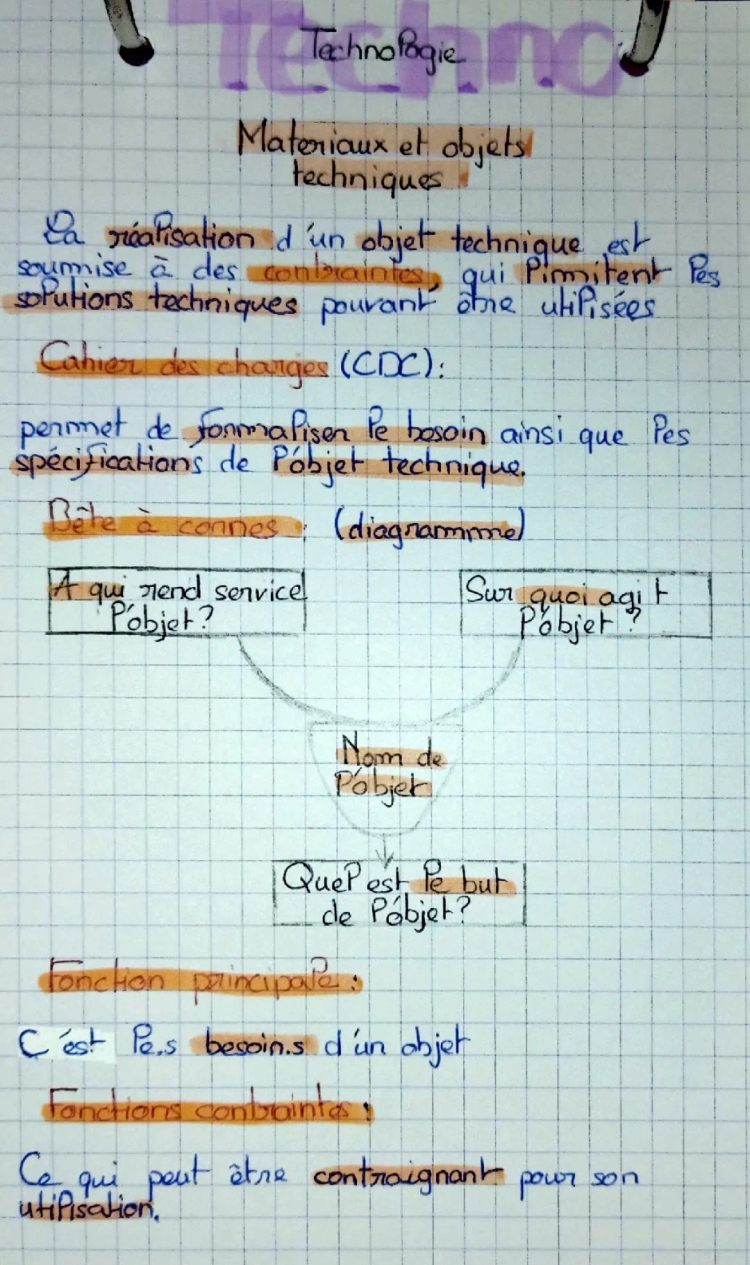 Techno
Technologie
Materiaux et objets
techniques
La réalisation d'un objet technique est
soumise à des contraintes, qui limitent les
solutions techniques pouvant être utilisées
Cahier des charges (CDC):
permet de formaliser le besoin ainsi que les
spécifications de l'objet technique.
Bête à cornes : (diagramme)
A qui rend service
l'objet?
Sur quoi agit
l'objet ?
Nom de
l'objet
Quel est le but
de l'objet?
Fonction principale :
C'est le.s besoin.s d'un objet
Fonctions contraintes :
Ce qui peut être contraignant pour son
utilisation.